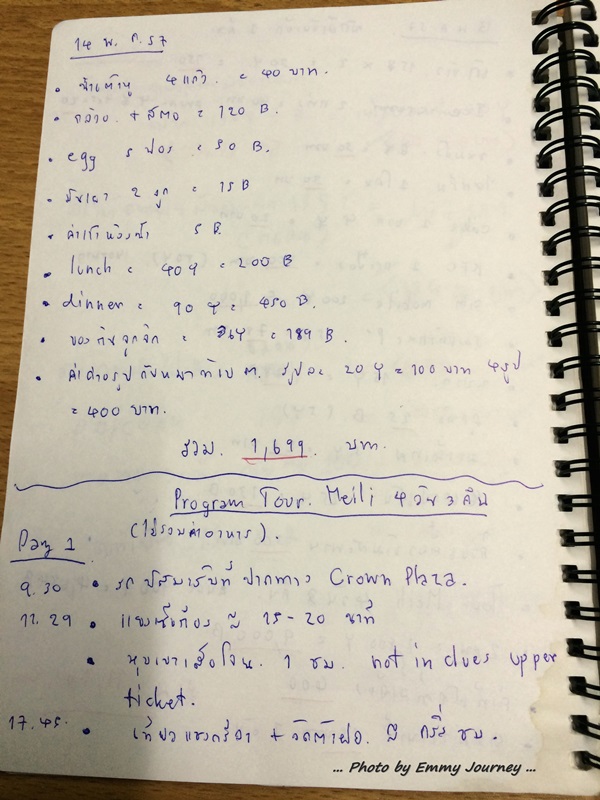 14 พ.ค.57
• น้ำเต้าหู้ 4 แก้ว = 40 บาท.
• กล้วย + สตอ = 120 B.
• egg 5 ฟอง = 50 B.
• มันเผา 2 ลูก = 15 B
• ค่าเข้าห้องน้ำ 5 B.
• lunch = 40 y = 200 B
• dinner = 90 y = 450 B.
• ของกินจุกจิก = y = 189 B.
• ค่าถ่ายรูปกับหมาทิเบต. รูปละ 20 y = 100 บาท 4 รูป
= 400 บาท.
รวม. 1,699. บาท.
Program Tour. Meili 4 วัน 3 คืน
(ไม่รวมค่าอาหาร).
Day 1
9.30 • รถ มารับที่ ปากทาง Crown Plaza.
11.29 • แม่น้ำ 15-20 นาที
• หุบเขาเสือโจน. 1 ชม. not in clues upper
ticket.
17.45. • เที่ยวแชงกรีล่า + วัด ชม.
... Photo by Emmy Journey ...